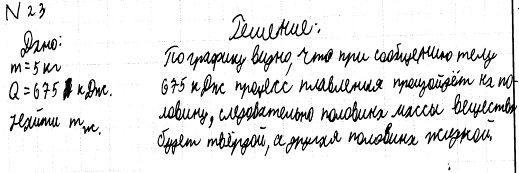 N 23
Решение:
Дано:
m = 5 кг
Q = 675 кДж.
Найти mж.
По графику видно, что при сообщению телу
675 кДж процесс плавления произойдёт на по-
ловину, следовательно половина массы вещества
будет твёрдой, а другая половина жидкой